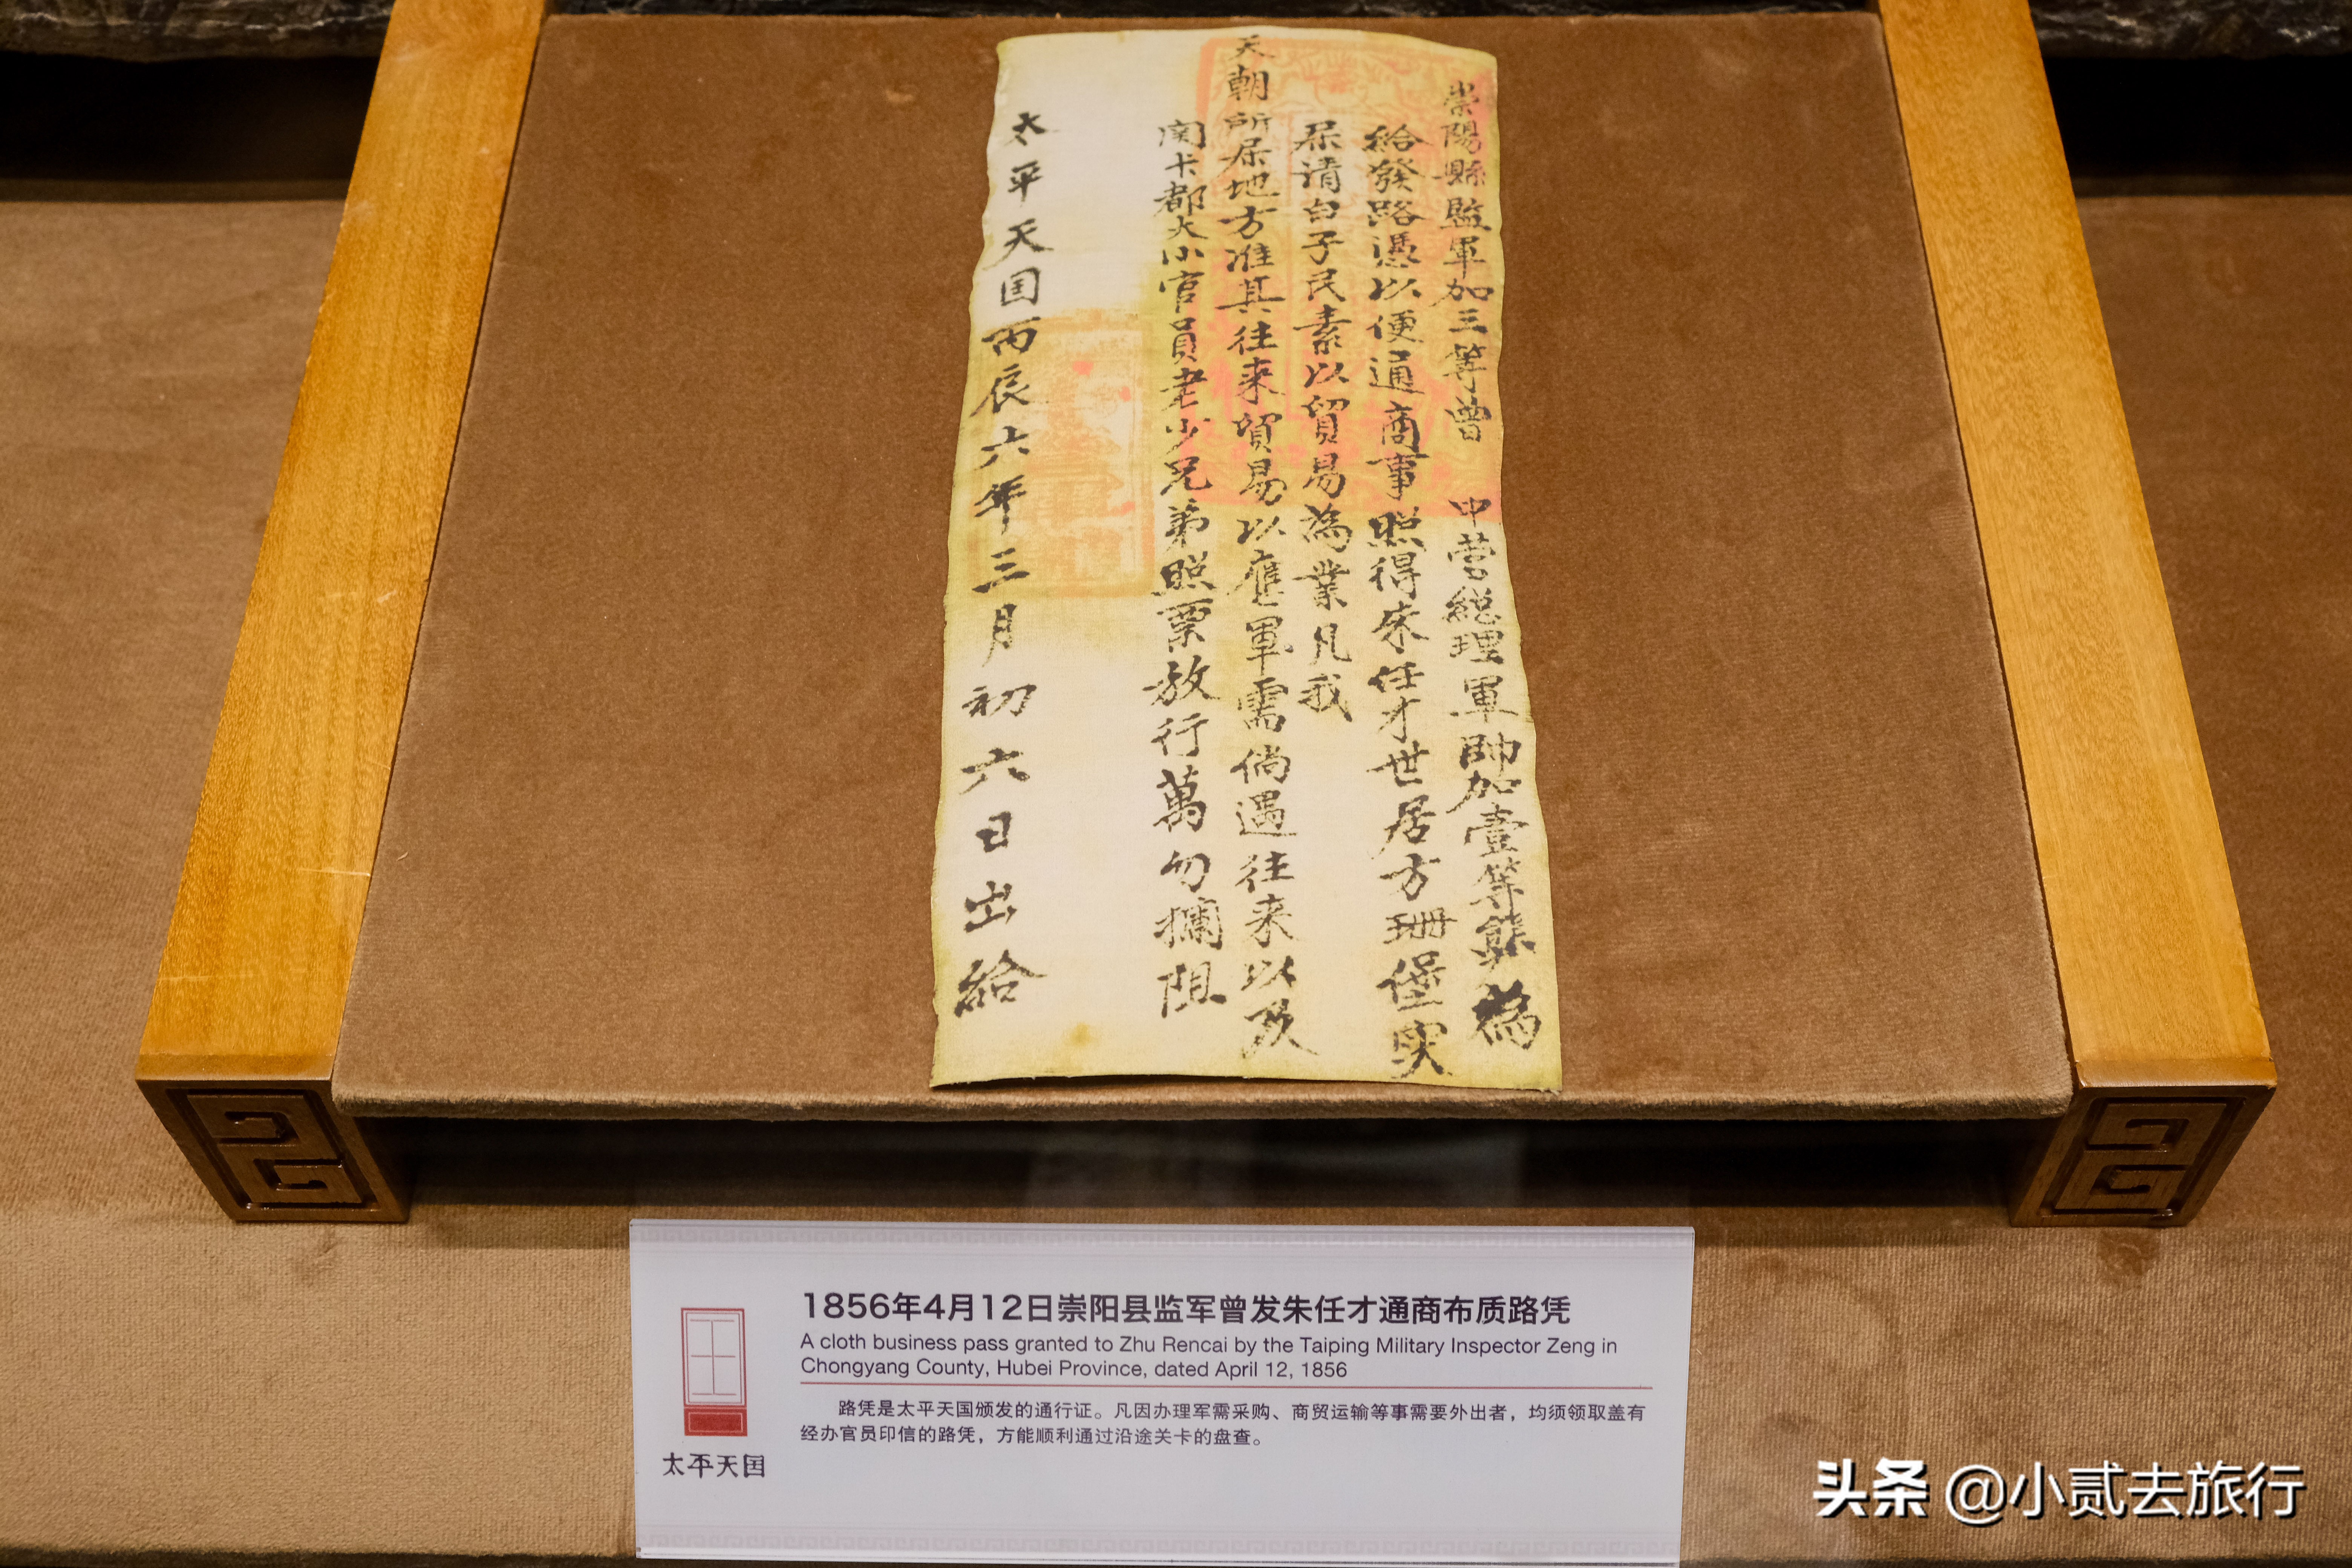 崇陽縣監軍加三等曾 中營總理軍帥加壹等熊為
給發路憑以便通商事照得朱任才世居方珊堡实
屎请白子民素以貿易為業凡我
天朝所屎地方准其往来貿易以應軍需倘遇往来以及
関卡都大小官員老少兄弟照票放行萬勿攔阻
太平天囯丙辰六年三月初六日出給
1856年4月12日崇阳县监军曾发朱任才通商布质路凭
A cloth business pass granted to Zhu Rencai by the Taiping Military Inspector Zeng in
Chongyang County, Hubei Province, dated April 12, 1856
路凭是太平天国颁发的通行证。凡因办理军需采购、商贸运输等事需要外出者，均须领取盖有
经办官员印信的路凭，方能顺利通过沿途关卡的盘查。
太平天囯
头条 @小贰去旅行